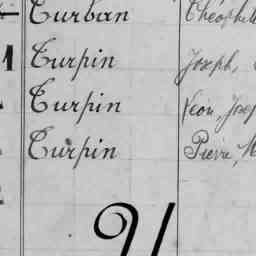 Turban Théophile
Turpin Joseph,
Turpin Léon, Josep
Turpin Pierre, M
U